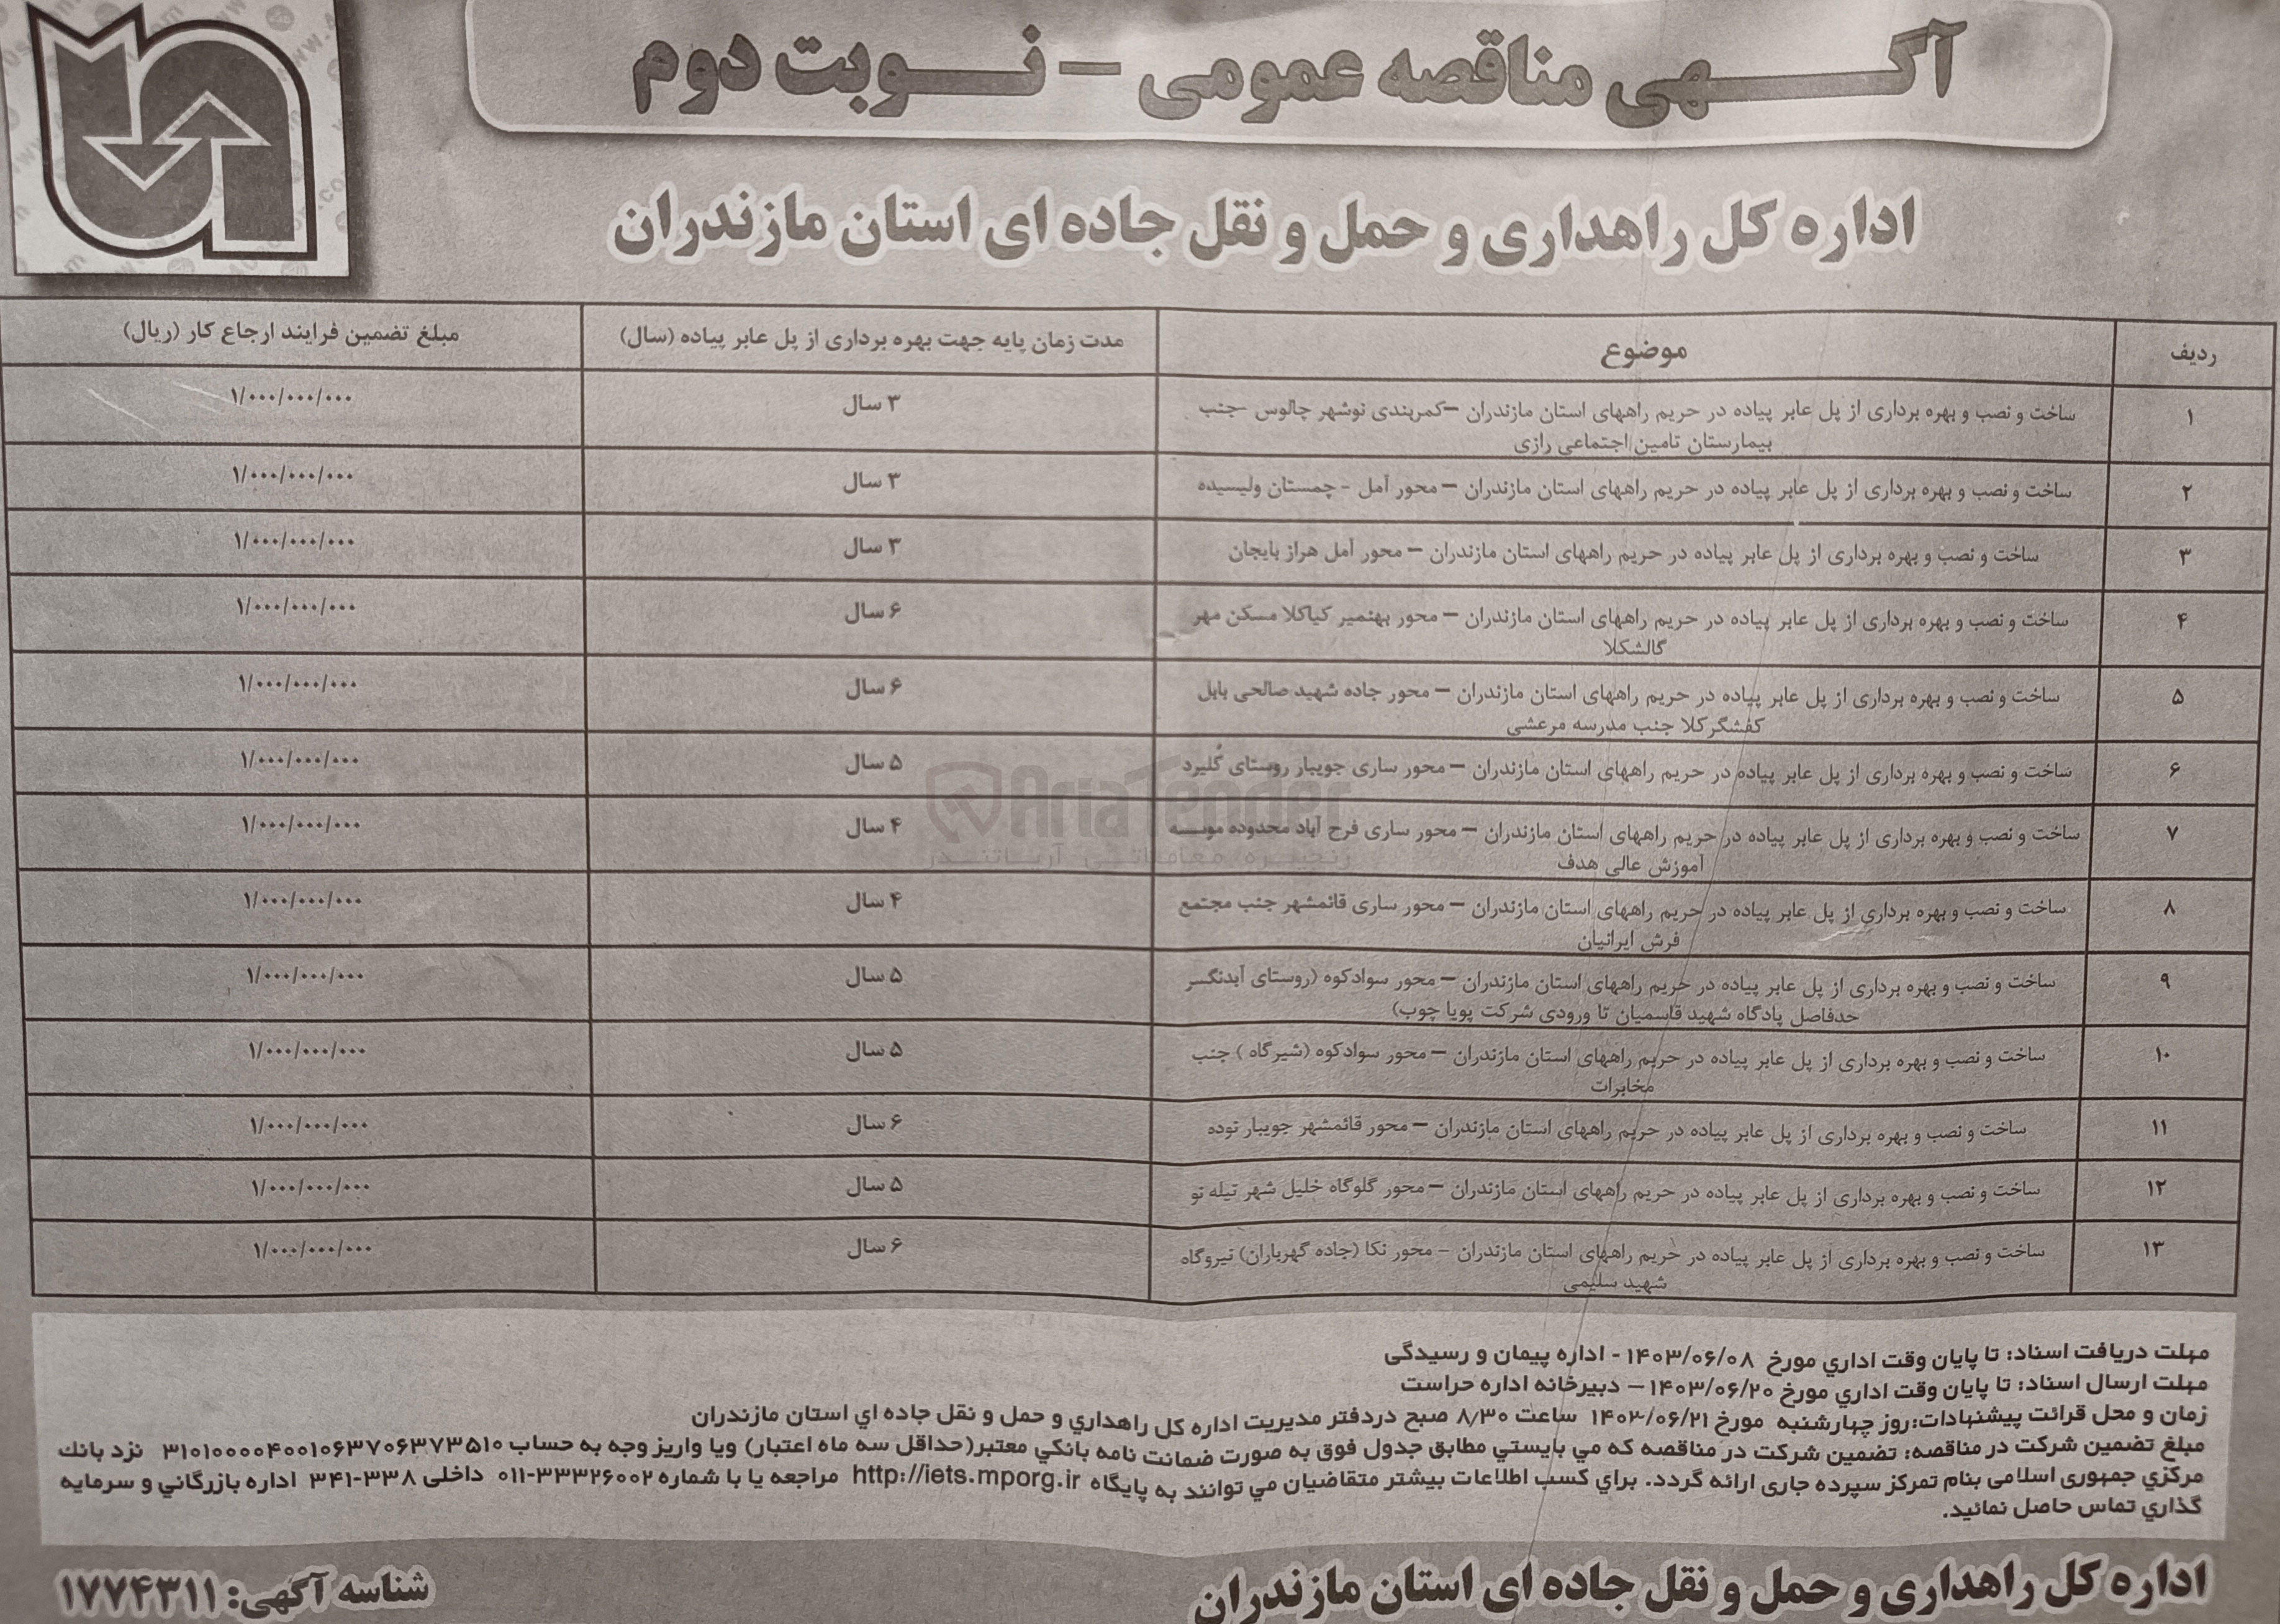 آگهی مناقصه عمومی – نوبت دوم
اداره کل راهداری و حمل و نقل جاده ای استان مازندران
ردیف موضوع مدت زمان پایه جهت بهره برداری از پل عابر پیاده (سال) مبلغ تضمین فرایند ارجاع کار (ریال)
۱ ساخت و نصب و بهره برداری از پل عابر پیاده در حریم راههای استان مازندران –کمربندی نوشهر چالوس -جنب ۳ سال ۱/۰۰۰/۰۰۰/۰۰۰
بیمارستان تامین اجتماعی رازی
۲ ساخت و نصب و بهره برداری از پل عابر پیاده در حریم راههای استان مازندران – محور آمل - چمستان ولیسیده ۳ سال ۱/۰۰۰/۰۰۰/۰۰۰
۳ ساخت و نصب و بهره برداری از پل عابر پیاده در حریم راههای استان مازندران – محور آمل هراز بایجان ۳ سال ۱/۰۰۰/۰۰۰/۰۰۰
۴ ساخت و نصب و بهره برداری از پل عابر پیاده در حریم راههای استان مازندران – محور بهنمیر کیاکلا مسکن مهر ۶ سال ۱/۰۰۰/۰۰۰/۰۰۰
گالشکلا
۵ ساخت و نصب و بهره برداری از پل عابر پیاده در حریم راههای استان مازندران – محور جاده شهید صالحی بابل ۶ سال ۱/۰۰۰/۰۰۰/۰۰۰
کفشگرکلا جنب مدرسه مرعشی
۶ ساخت و نصب و بهره برداری از پل عابر پیاده در حریم راههای استان مازندران – محور ساری جویبار روستای گُلیرد ۵ سال ۱/۰۰۰/۰۰۰/۰۰۰
۷ ساخت و نصب و بهره برداری از پل عابر پیاده در حریم راههای استان مازندران – محور ساری فرح آباد محدوده موسسه ۴ سال ۱/۰۰۰/۰۰۰/۰۰۰
آموزش عالی هدف
۸ ساخت و نصب و بهره برداری از پل عابر پیاده در حریم راههای استان مازندران – محور ساری قائمشهر جنب مجتمع ۴ سال ۱/۰۰۰/۰۰۰/۰۰۰
فرش ایرانیان
۹ ساخت و نصب و بهره برداری از پل عابر پیاده در حریم راههای استان مازندران – محور سوادکوه (روستای آبدنگسر ۵ سال ۱/۰۰۰/۰۰۰/۰۰۰
حدفاصل پادگاه شهید قاسمیان تا ورودی شرکت پویا چوب)
۱۰ ساخت و نصب و بهره برداری از پل عابر پیاده در حریم راههای استان مازندران – محور سوادکوه (شیرگاه ) جنب ۵ سال ۱/۰۰۰/۰۰۰/۰۰۰
مخابرات
۱۱ ساخت و نصب و بهره برداری از پل عابر پیاده در حریم راههای استان مازندران – محور قائمشهر جویبار توده ۶ سال ۱/۰۰۰/۰۰۰/۰۰۰
۱۲ ساخت و نصب و بهره برداری از پل عابر پیاده در حریم راههای استان مازندران – محور گلوگاه خلیل شهر تیله نو ۵ سال ۱/۰۰۰/۰۰۰/۰۰۰
۱۳ ساخت و نصب و بهره برداری از پل عابر پیاده در حریم راههای استان مازندران – محور نکا (جاده گهرباران) نیروگاه ۶ سال ۱/۰۰۰/۰۰۰/۰۰۰
شهید سلیمی
AriaTender
زنجیره معاملاتی آریاتندر
مهلت دریافت اسناد: تا پایان وقت اداري مورخ ۱۴۰۳/۰۶/۰۸ - اداره پیمان و رسیدگی
مهلت ارسال اسناد: تا پایان وقت اداري مورخ ۱۴۰۳/۰۶/۲۰ – دبیرخانه اداره حراست
زمان و محل قرائت پیشنهادات:روز چهارشنبه مورخ ۱۴۰۳/۰۶/۲۱ ساعت ۸/۳۰ صبح دردفتر مدیریت اداره کل راهداري و حمل و نقل جاده اي استان مازندران
مبلغ تضمین شرکت در مناقصه: تضمین شرکت در مناقصه که مي بایستي مطابق جدول فوق به صورت ضمانت نامه بانکي معتبر(حداقل سه ماه اعتبار) ویا واریز وجه به حساب ۳۱۰۱۰۰۰۰۴۰۰۱۰۶۳۷۰۶۳۷۳۵۱۰ نزد بانك
مرکزي جمهوری اسلامی بنام تمرکز سپرده جاری ارائه گردد. براي کسب اطلاعات بیشتر متقاضیان مي توانند به پایگاه http://iets.mporg.ir مراجعه یا با شماره ۳۳۳۲۶۰۰۲-۰۱۱ داخلی ۳۳۸-۳۴۱ اداره بازرگاني و سرمایه
گذاري تماس حاصل نمائید.
اداره کل راهداری و حمل و نقل جاده ای استان مازندران
شناسه آگهی: ۱۷۷۴۳۱۱